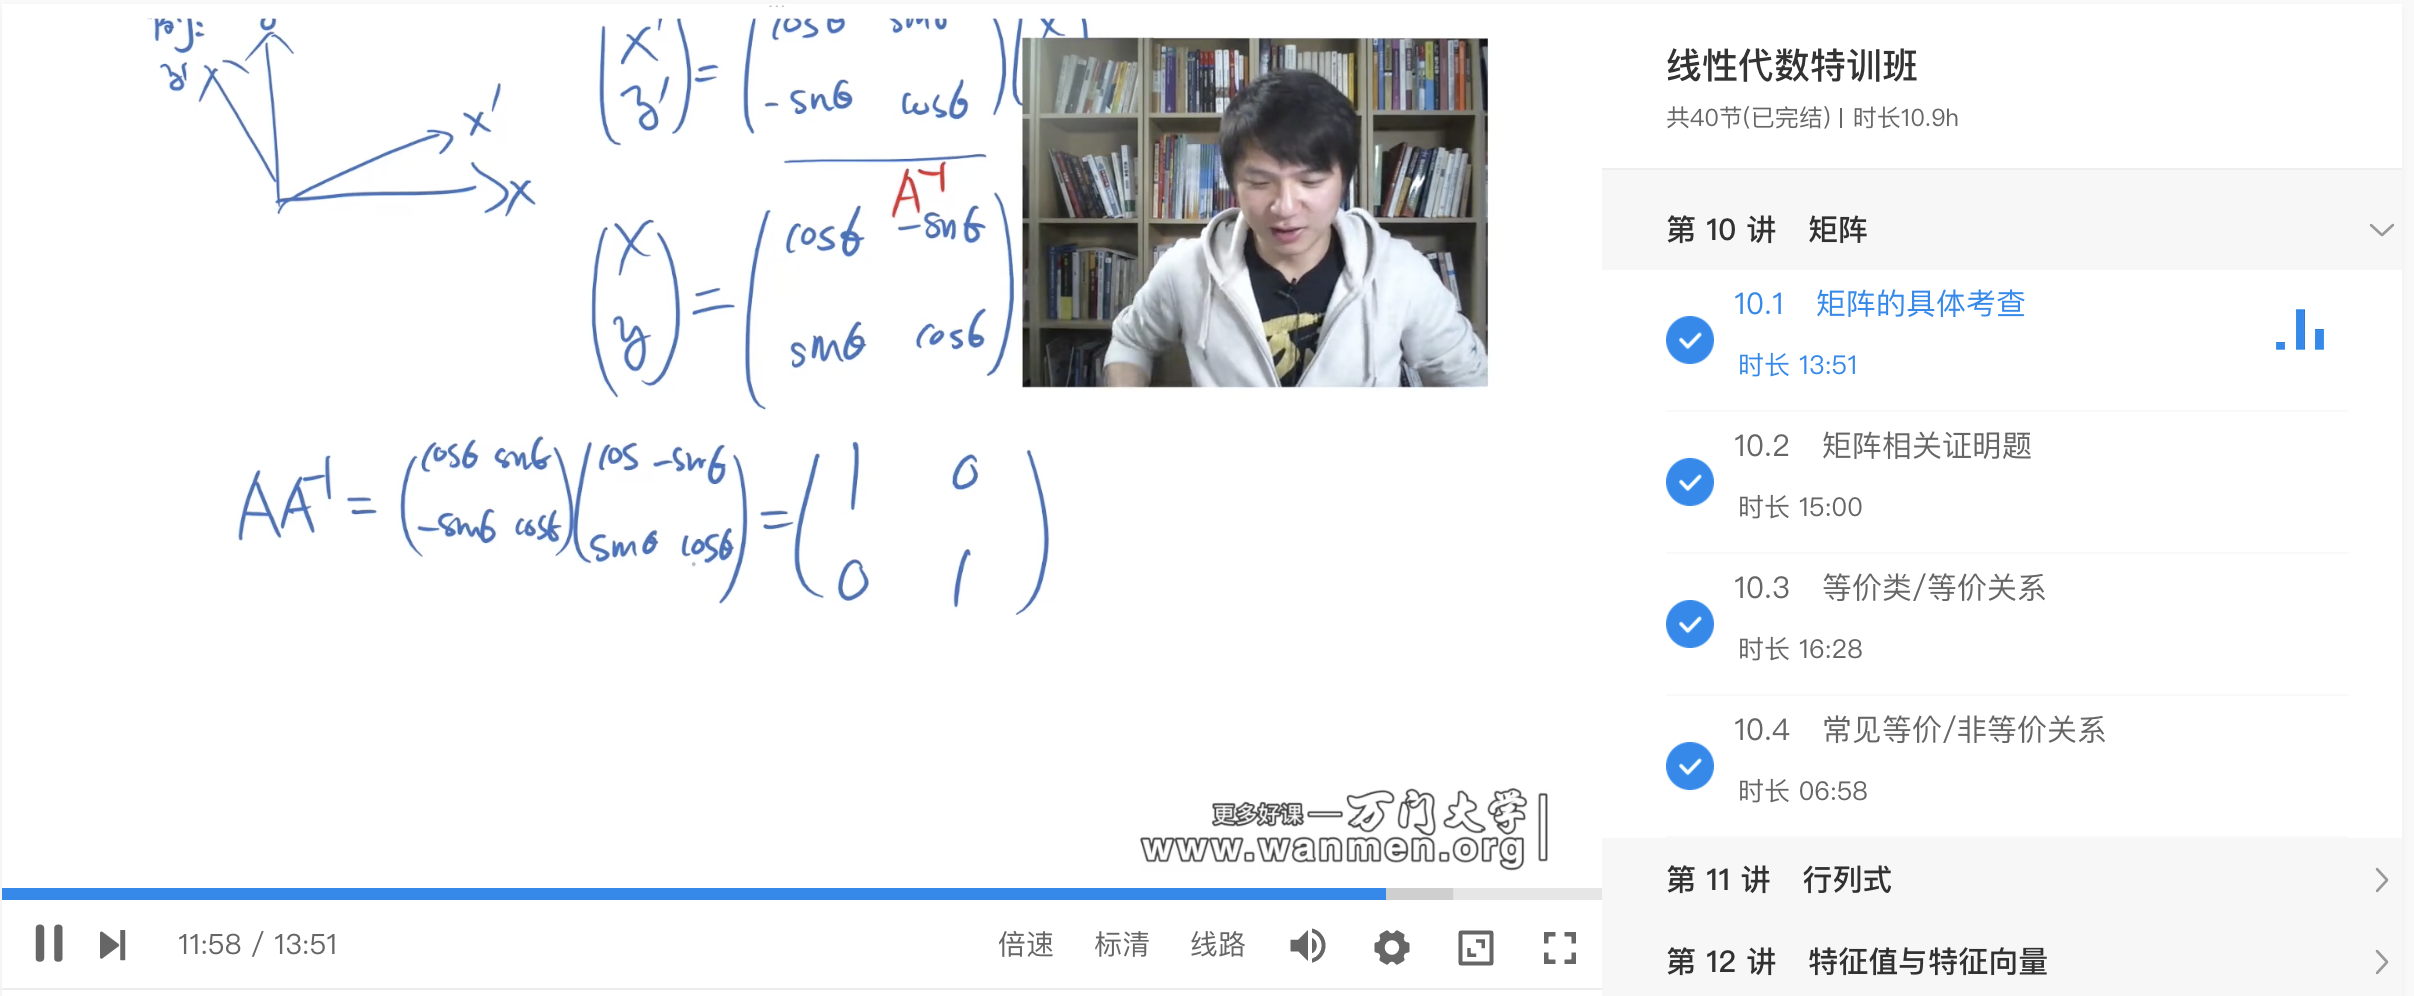 x'
x
(x' y') = (cosθ sinθ -sinθ cosθ)(x
A⁻¹
(x y) = (cosθ -sinθ sinθ cosθ)
AA⁻¹ = (cosθ sinθ -sinθ cosθ)(cos -sinθ sinθ cosθ) = (1 0 0 1)
更多好课一万门大学
www.wanmen.org
11:58 / 13:51
倍速 标清 线路
线性代数特训班
共40节(已完结) | 时长10.9h
第 10 讲 矩阵
10.1 矩阵的具体考查
时长 13:51
10.2 矩阵相关证明题
时长 15:00
10.3 等价类/等价关系
时长 16:28
10.4 常见等价/非等价关系
时长 06:58
第 11 讲 行列式
第 12 讲 特征值与特征向量